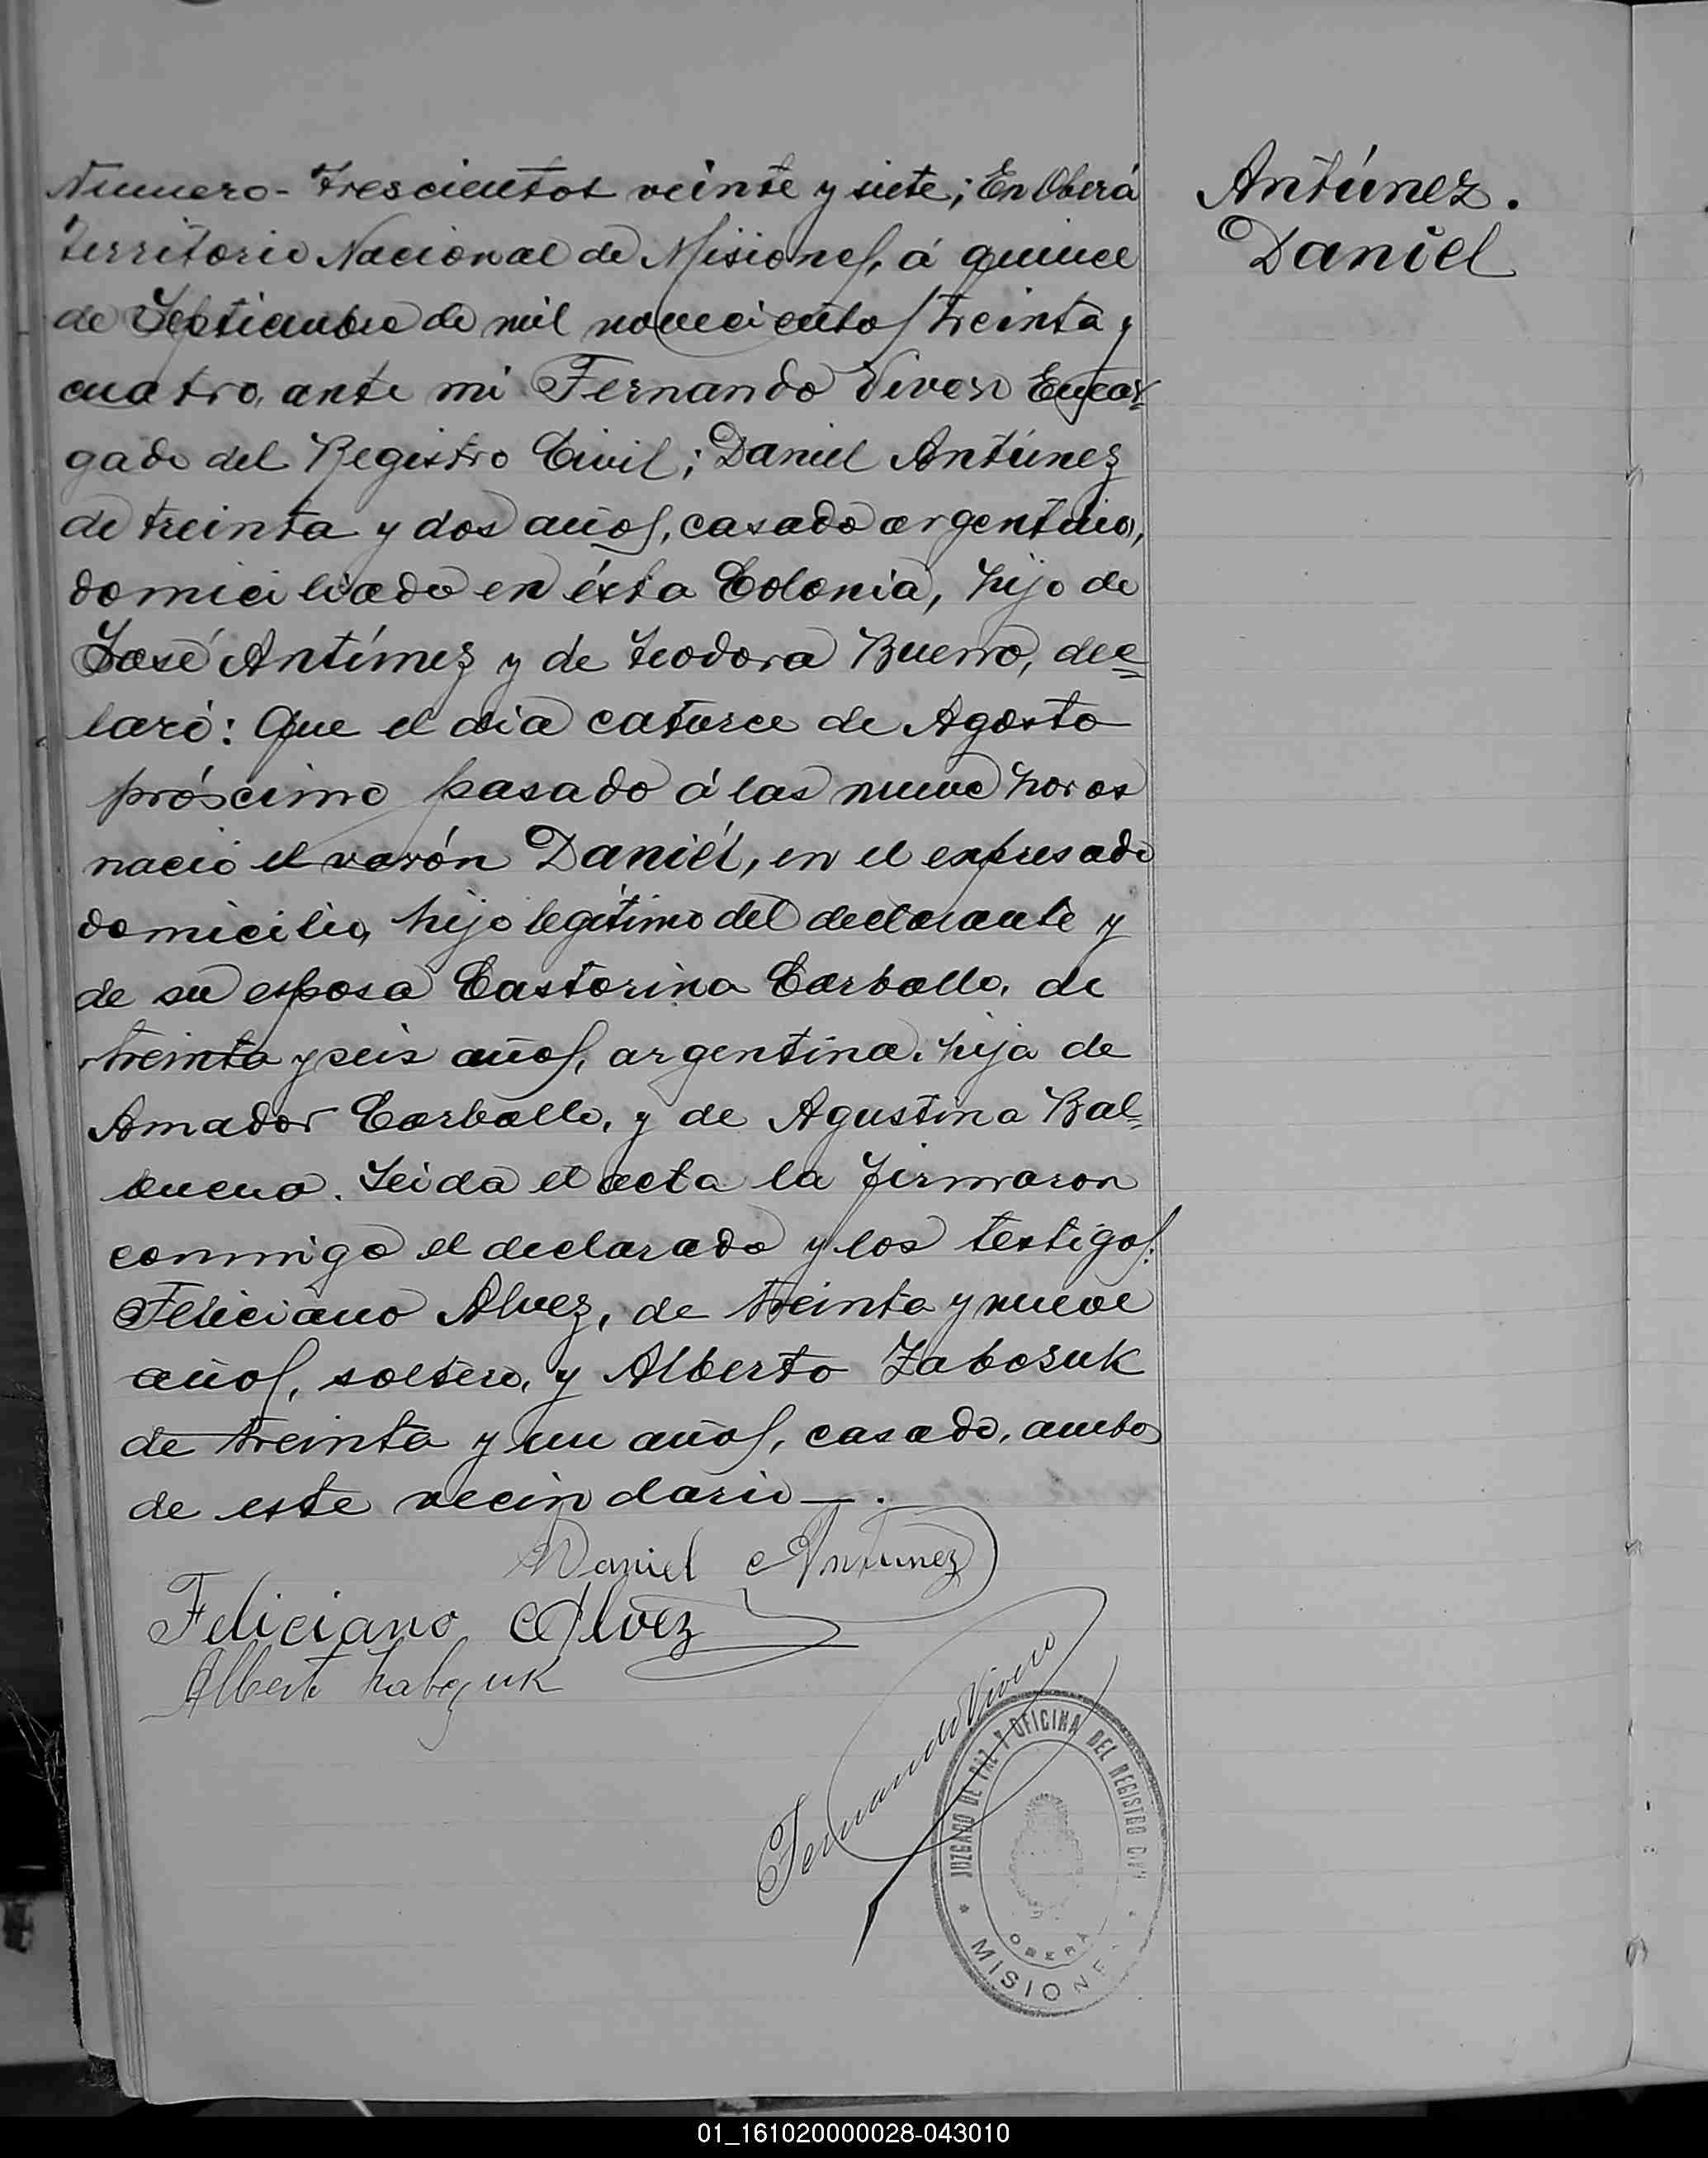 Antúnez.
Daniel
Numero - Trescientos veinte y siete; En Oberá
Territorio Nacional de Misiones, á quince
de Septiembre de mil novecientos treinta y
cuatro, ante mi Fernando Vivero Encar-
gado del Registro Civil; Daniel Antúnez
de treinta y dos años, casado argentino,
domiciliado en ésta Colonia, hijo de
José Antúnez y de Teodora Bueno, dec=
laró: Que el dia catorce de Agosto
próscimo pasado á las nueve horas
nació el varón Daniél, en el expresado
domicilio, hijo legítimo del declarante y
de su esposa Castorina Carballo, de
treinta y seis años, argentina, hija de
Amador Carballo, y de Agustina Bal=
buena. Leida el acta la firmaron
conmigo el declarado y los testigos:
Feliciano Alvez, de treinta y nueve
años, soltero, y Alberto Zabczuk
de treinta y un años, casado, ambos
de este vecindario—.
Daniel Antunez
Feliciano Alvez
Alberto Zabczuk
Fernando Vivero
JUZGADO DE PAZ Y OFICINA DEL REGISTRO CIVIL
OBERA
MISIONES
01_161020000028-043010